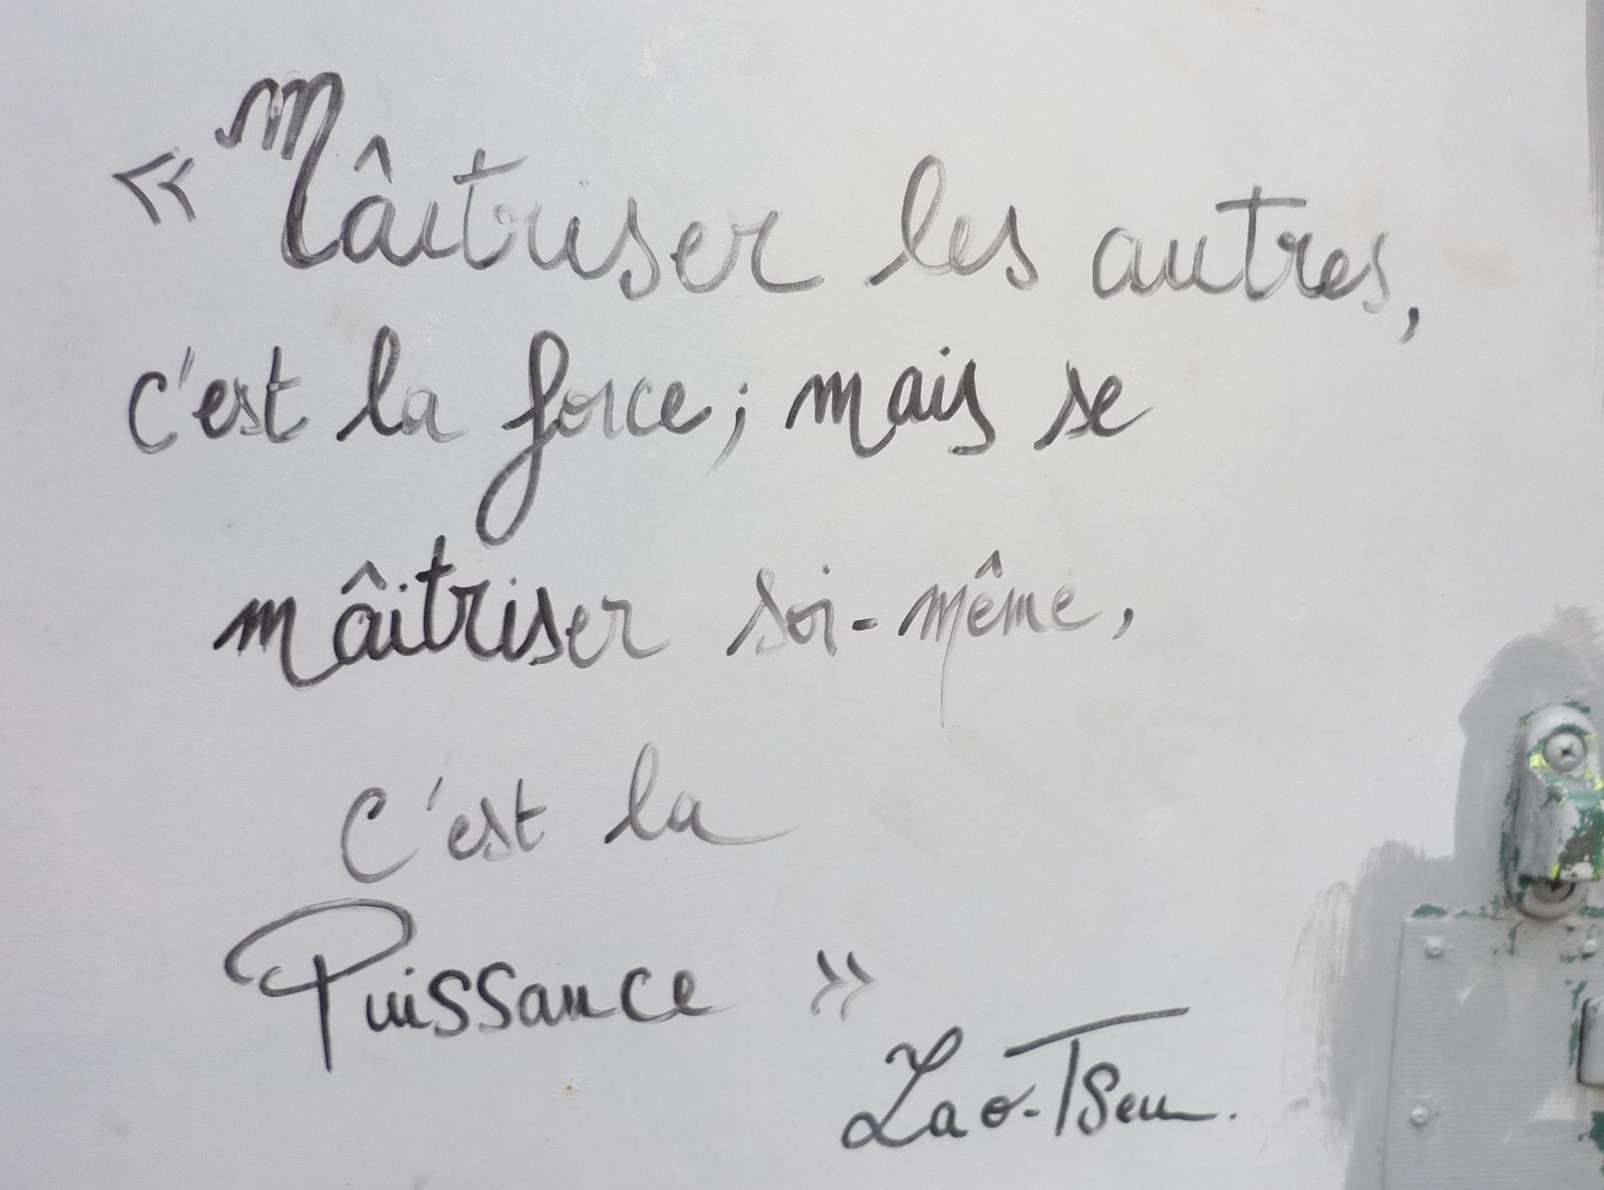 « Mâitriser les autres,
c'est la force ; mais se
mâitriser soi-même,
c'est la
Puissance »
Lao-Tseu.